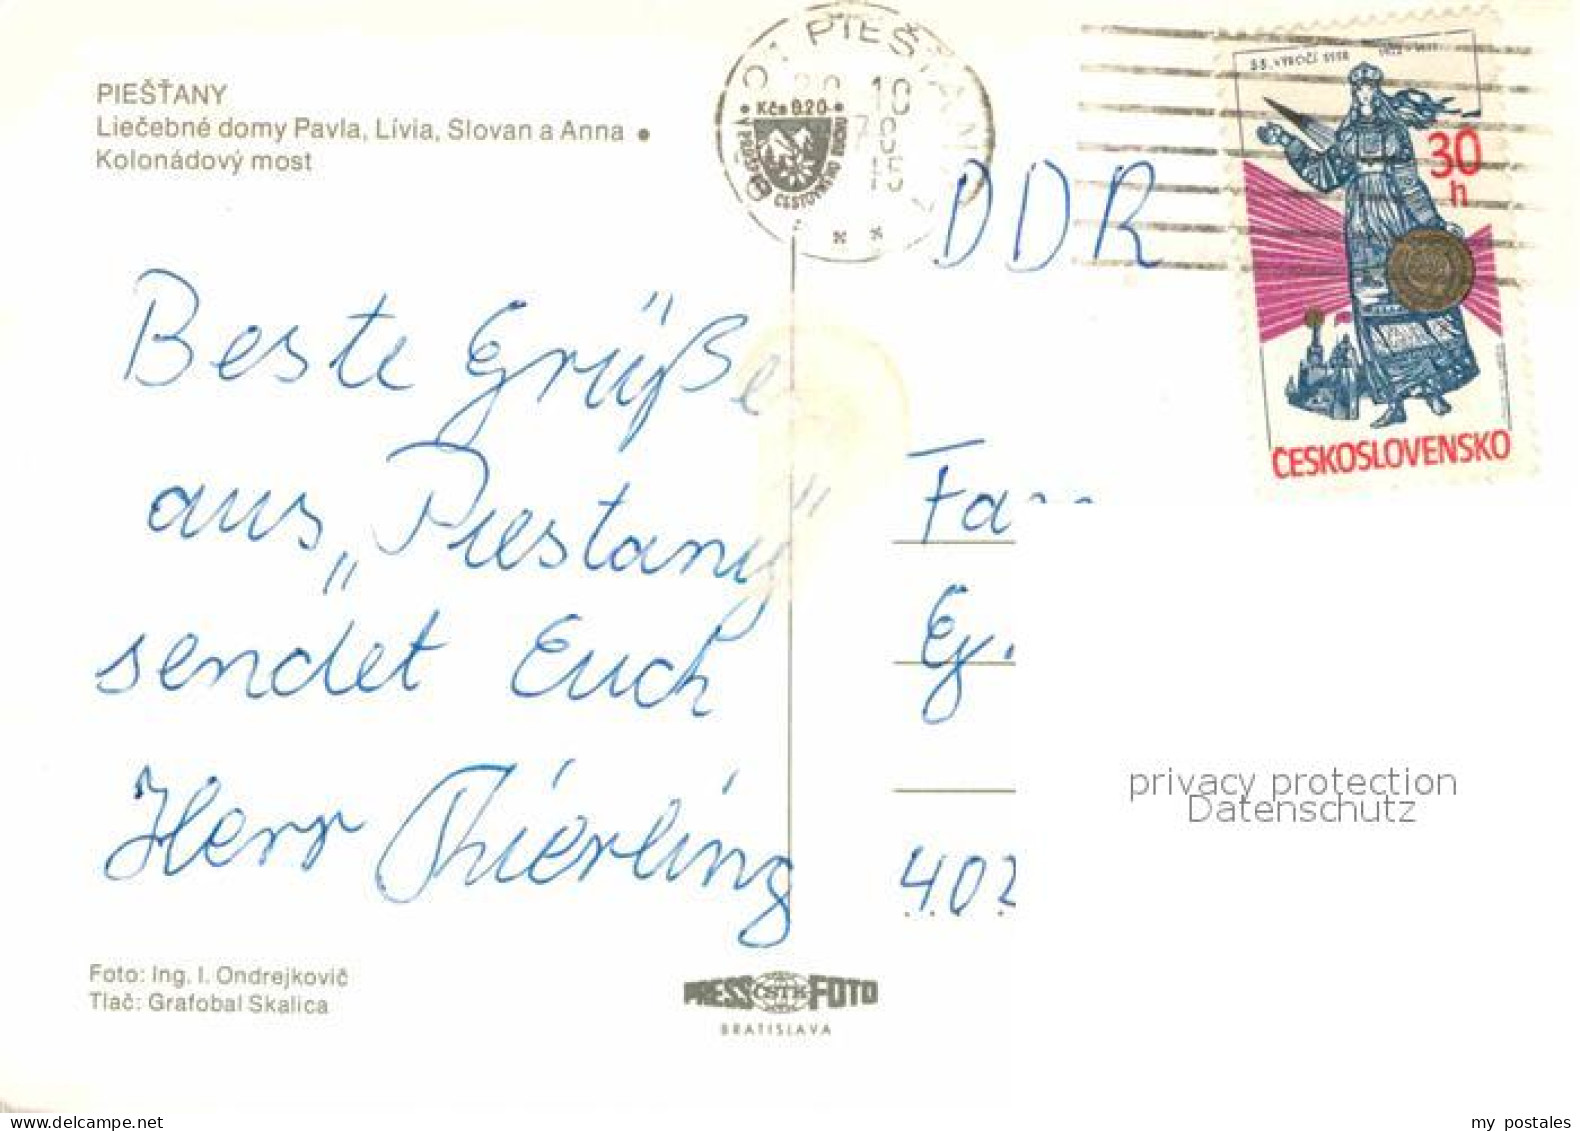 PIEŠŤANY
Liečebné domy Pavla, Lívia, Slovan a Anna •
Kolonádový most
PIEŠŤANY
20 10
Kčs 0.20
V PROSPECH
CESTOVNÉHO RUCHU
55. VÝROČÍ SSSR 1922 - 1977
30
h
ČESKOSLOVENSKO
DDR
Beste Grüße
aus „Piestany“
sendet Euch
Herr Thierling
Fa
Ej.
402
privacy protection
Datenschutz
Foto: Ing. I. Ondrejkovič
Tlač: Grafobal Skalica
PRESS ČSTK FOTO
BRATISLAVA
my postales